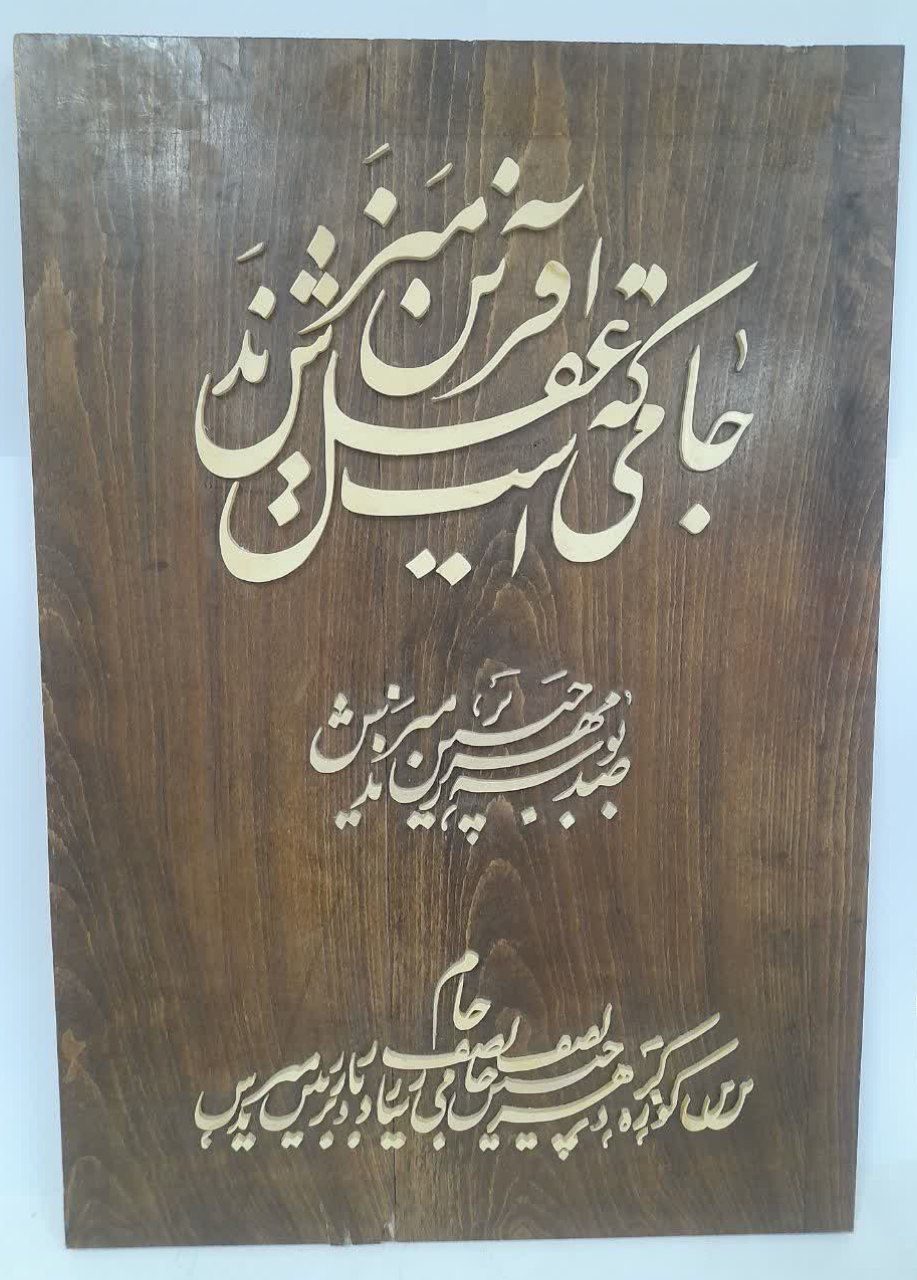 جامی است که عقل آفرین میزندش
صد بوسه ز مهر بر جبین میزندش
این کوزه‌گر دهر چنین جام لطیف
می‌سازد و باز بر زمین میزندش